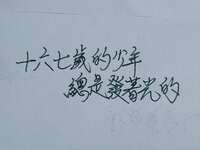 十六七歲的少年
總是發著光的